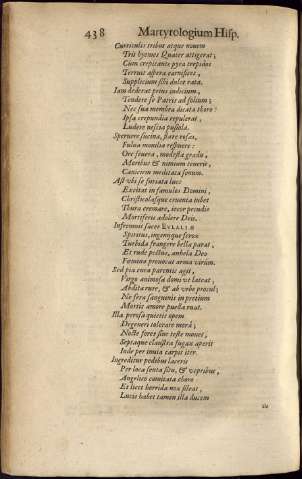 438 Martyrologium Hisp.
Curriculis tribus atque nouem
Tris hyemes Quater attigerat;
Cum crepitante pyra trepidos
Terruit aspera carnifices,
Supplicium sibi dulce rata.
Iam dederat prius indicium,
Tendere se Patris ad solium;
Nec sua membra dicata thoro:
Ipsa crepundia repulerat,
Ludere nescia pusiola.
Spernere sucina, flare rosas,
Fulua monilia respuere:
Ore seuera, modesta gradu,
Moribus & nimium teneris,
Canitiem meditata senum.
Ast vbi se furiata lues
Excitat in famulos Domini,
Christicolasque cruenta iubet
Thura cremare, iecor pecudis
Mortiferis adolere Deis.
Infremuit sacer EVLALIÆ
Spiritus, ingenijque ferox
Turbida frangere bella parat,
Et rude pectus, anhela Deo
Fæmina prouocat arma virûm.
Sed pia cura parentis agit,
Virgo animosa domi vt lateat,
Abdita rure, & ab vrbe procul;
Ne fera sanguinis in pretium
Mortis amore puella ruat.
Illa perosa quietis opem
Degeneri tolerare morâ;
Nocte fores sine teste mouet,
Septaque claustra fugax aperit
Inde per inuia carpit iter.
Ingreditur pedibus laceris
Per loca senta situ, & vepribus,
Angelico comitata choro
Et licet horrida nox sileat,
Lucis habet tamen illa ducem